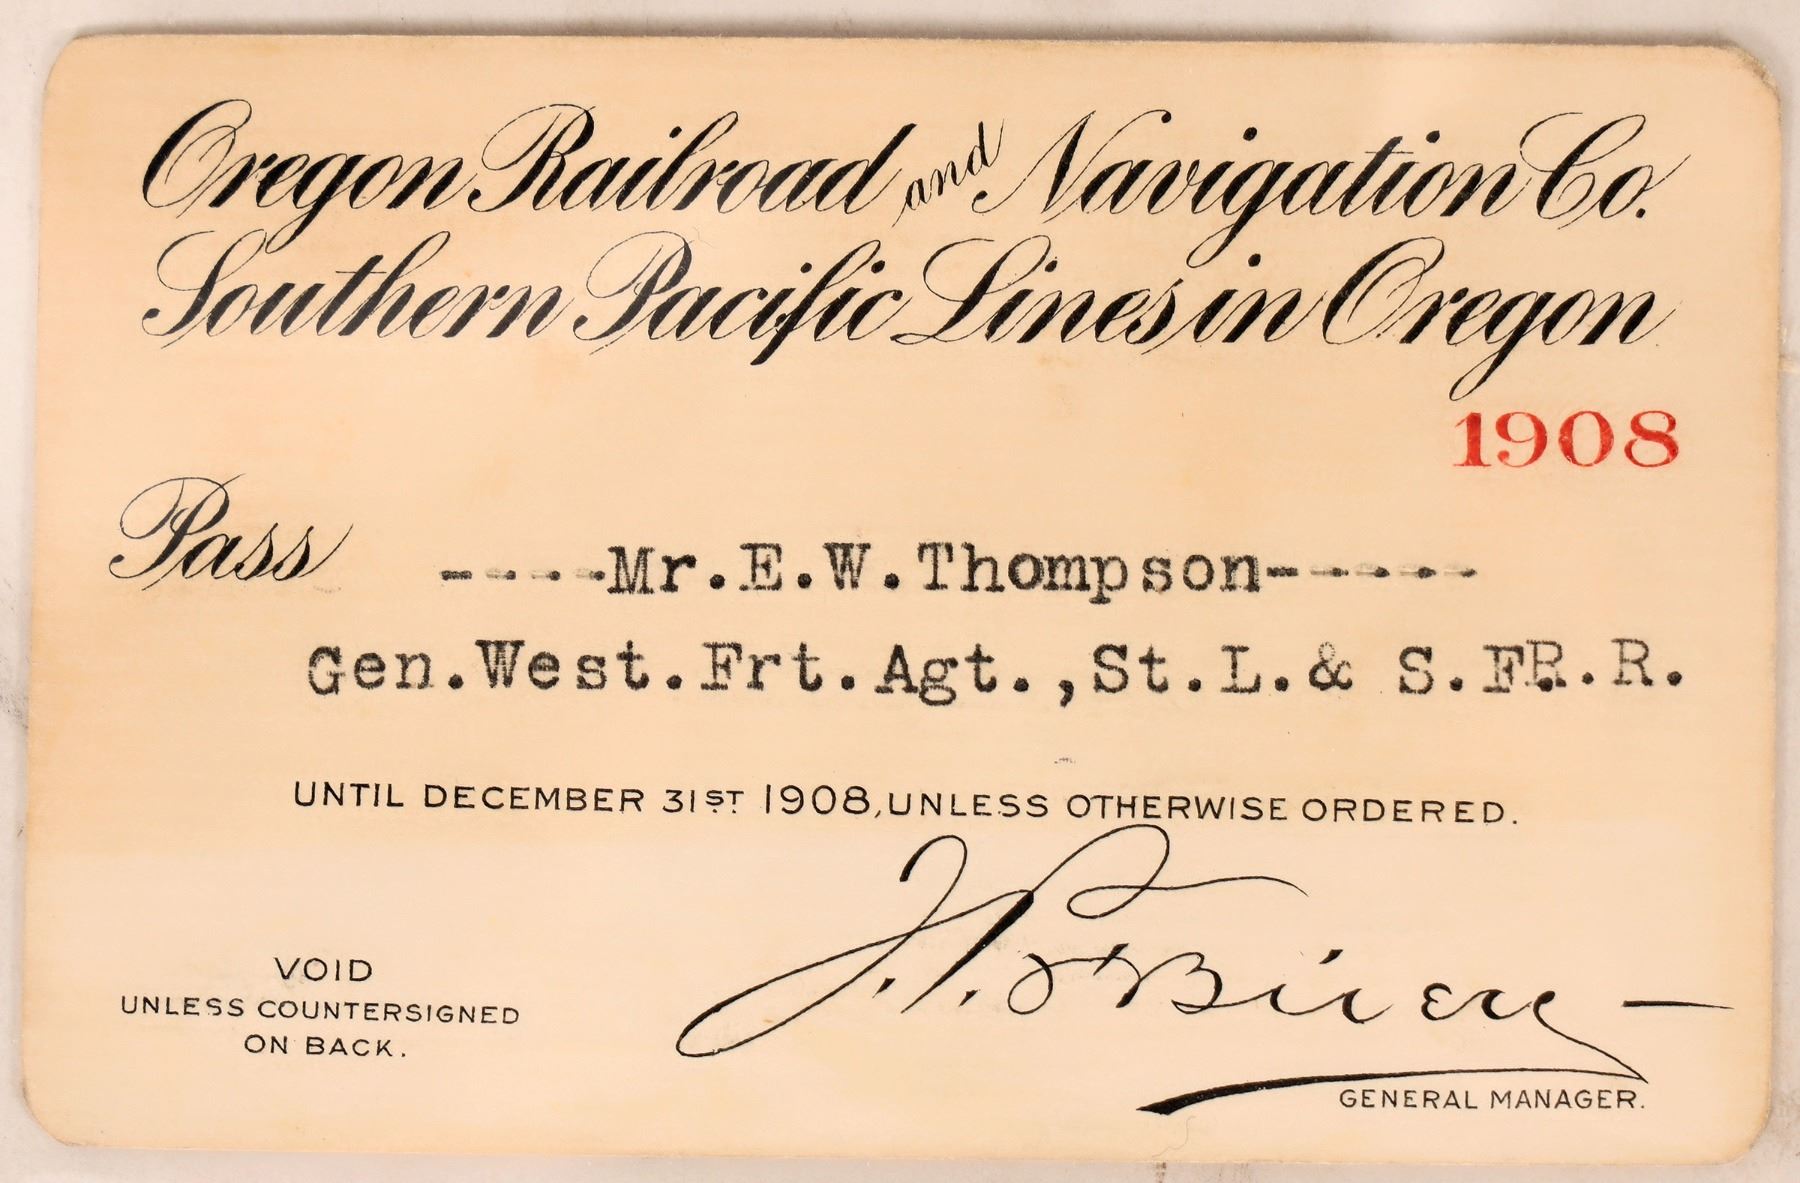 Oregon Railroad and Navigation Co.
Southern Pacific Lines in Oregon
1908
Pass ----Mr.E.W.Thompson------
Gen.West.Frt.Agt.,St.L.& S.F.R.R.
UNTIL DECEMBER 31ST 1908, UNLESS OTHERWISE ORDERED.
J. P. O'Brien
VOID
UNLESS COUNTERSIGNED
ON BACK.
GENERAL MANAGER.